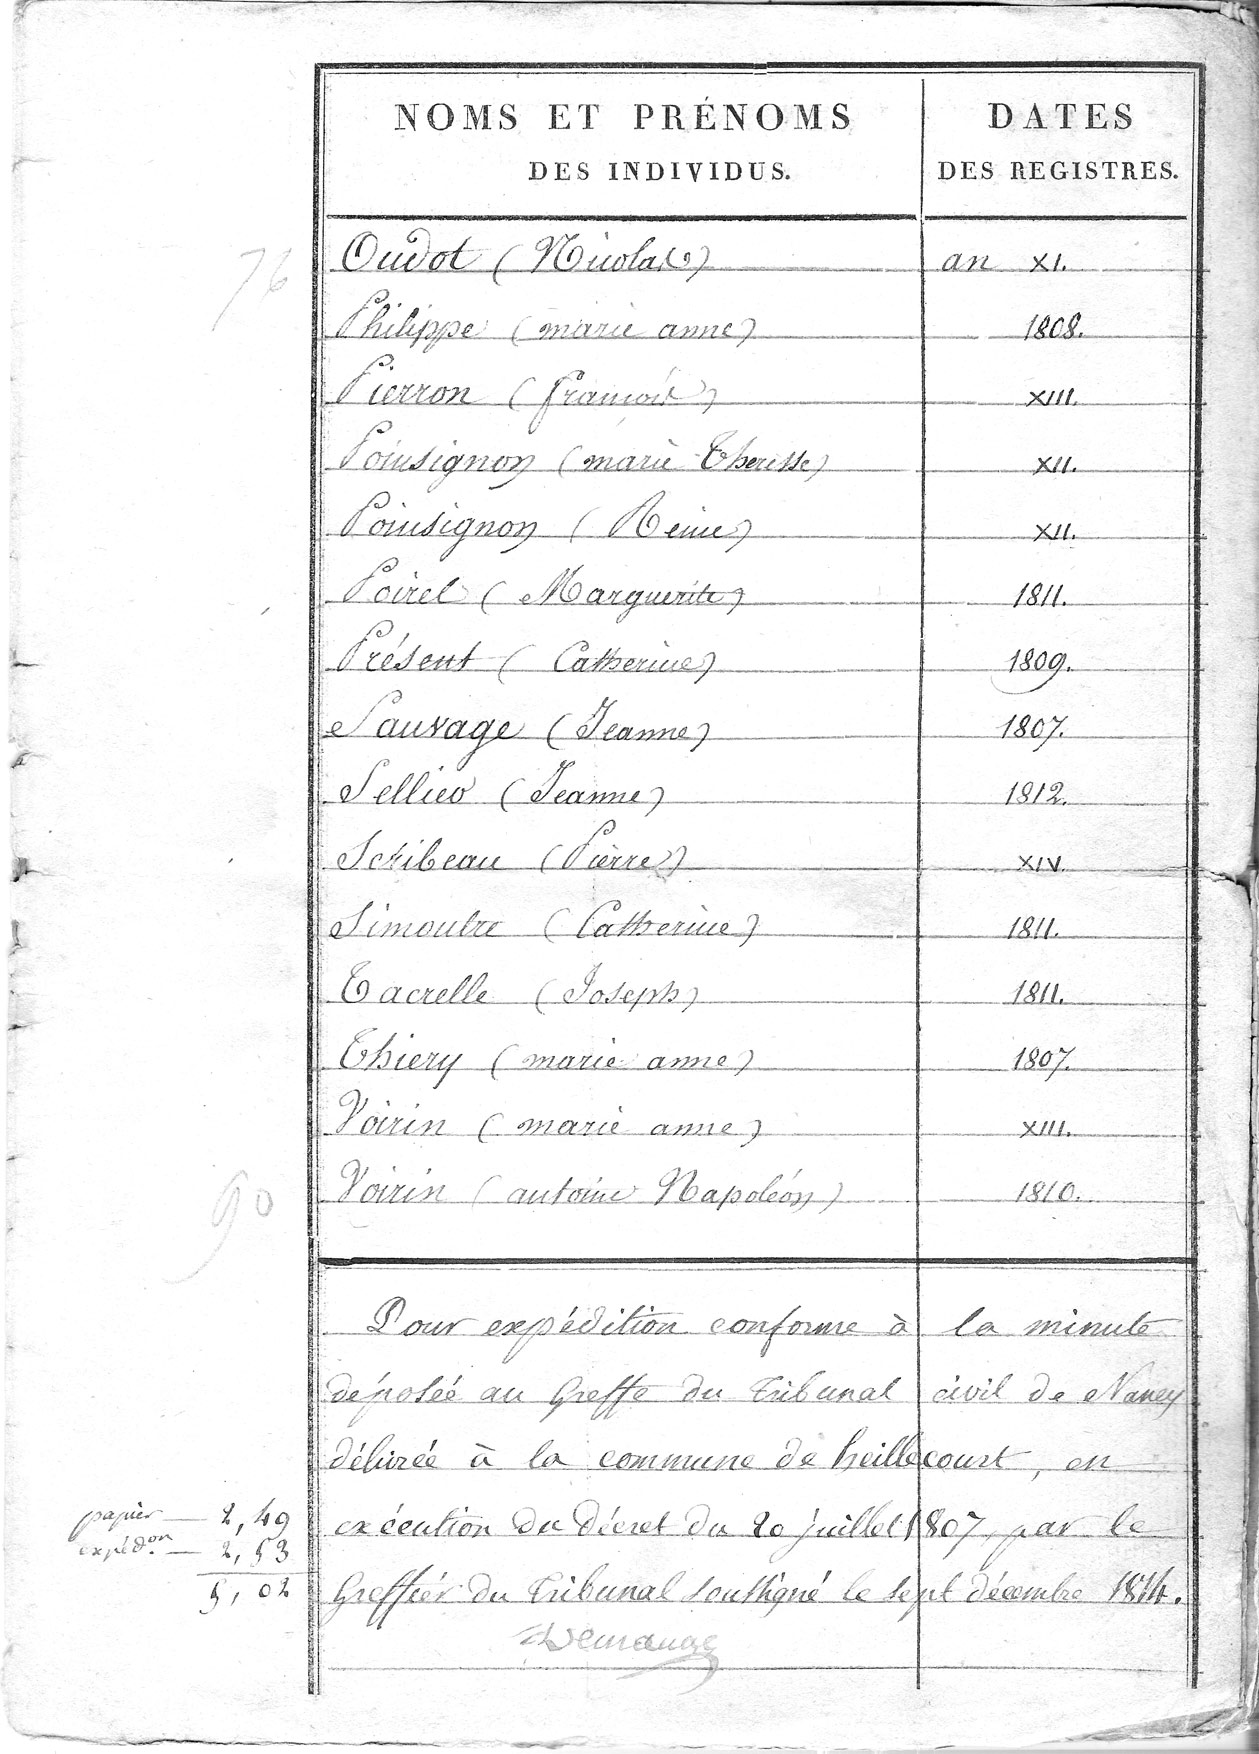 NOMS ET PRÉNOMS DATES
DES INDIVIDUS. DES REGISTRES.
76 Oudot (Nicolas) an XI.
Philippe (marie anne) 1808.
Pierron (françois) XIII.
Poinsignon (marie Theresse) XII.
Poinsignon (Reine) XII.
Poirel (Marguerite) 1811.
Présent (Catherine) 1809.
Sauvage (Jeanne) 1807.
Sellier (Jeanne) 1812.
Scribeau (Pierre) XIV.
Simoutre (Catherine) 1811.
Tacrelle (Joseph) 1811.
Thiery (marie anne) 1807.
Voirin (marie anne) XIII.
90 Voirin (antoine Napoléon) 1810.
Pour expédition conforme à la minute
déposée au Greffe du Tribunal civil de Nancy
délivrée à la commune de heillecourt, en
papier — 2,49 exécution du Décret du 20 juillet 1807, par le
expédon. — 2,53
5,02 Greffier du Tribunal soussigné le sept décembre 1814.
Demange